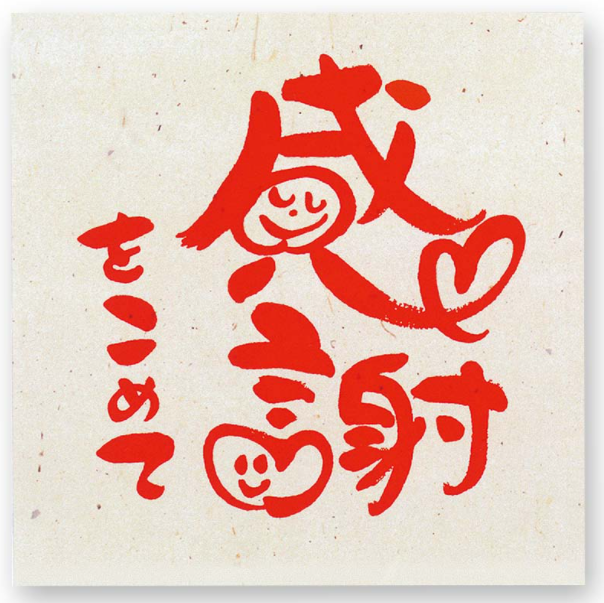 感謝
をこめて